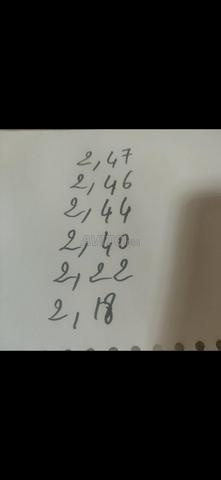 2,47
2,46
2,44
2,40
2,22
2,18